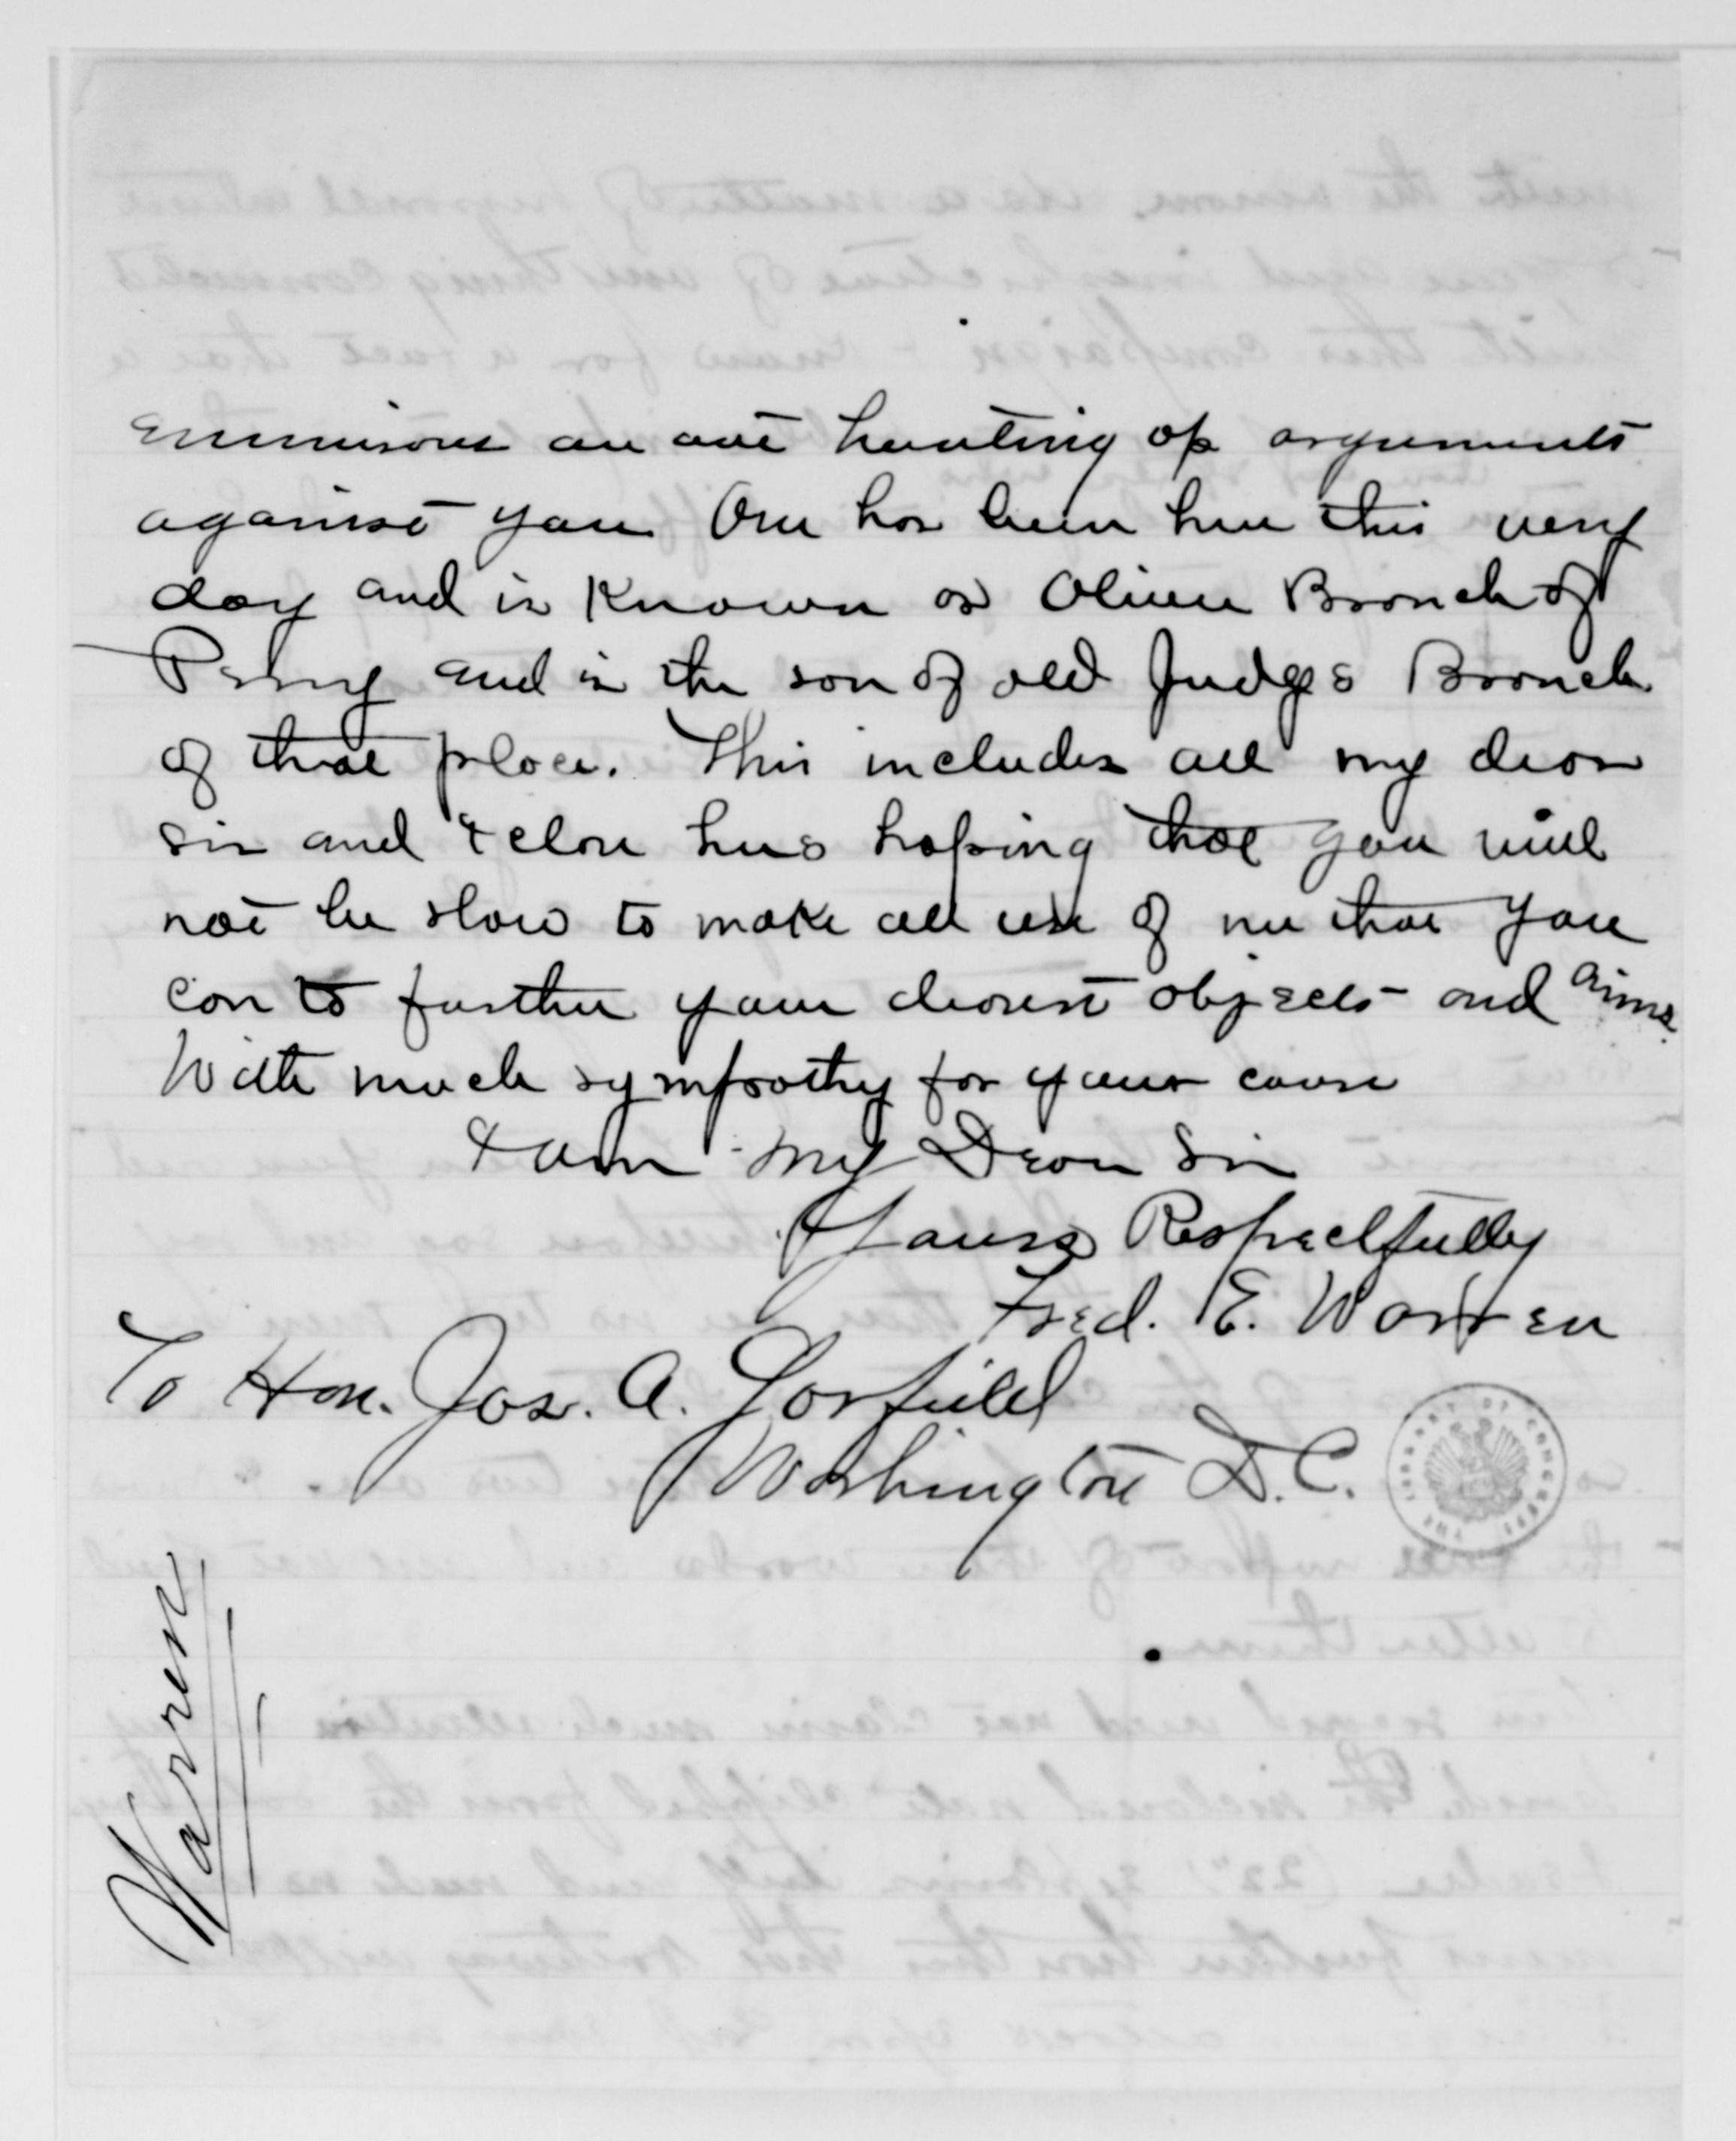 emmisories are out hunting up arguments
against you One has been here this very
day and is Known as Oliver Branch of
Perry and is the son of old Judge Branch
of that place. This includes all my dear
sir and I close hers hoping that you will
not be slow to make all use of me that you
can to further your dearest objects and aims.
With much sympathy for your cause
I am my Dear Sir
Yours Respectfully
Fred. E. Warren
To Hon. Jas. A. Garfield
Washington D.C.
THE LIBRARY OF CONGRESS
Warren